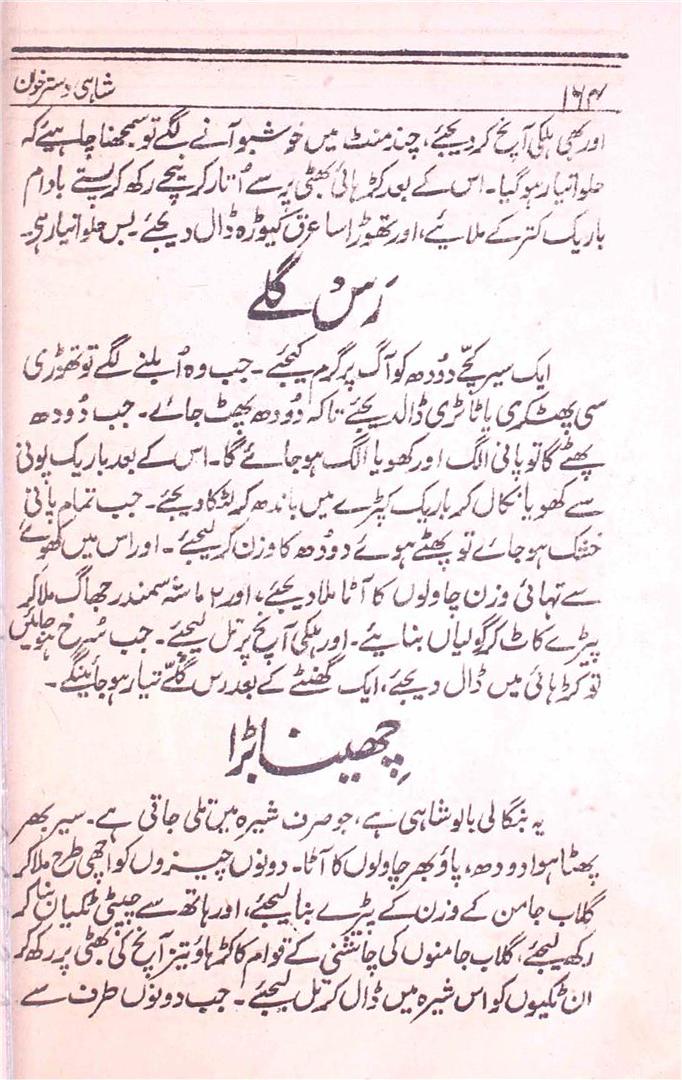 شاہی دسترخوان
۱۶۴
اور بھی ہلکی آنچ کر دیجئے، چند منٹ میں خوشبو آنے لگے تو سمجھنا چاہیئے کہ
حلوا تیار ہو گیا۔ اس کے بعد کڑہائی بھٹی پر سے اُتار کر نیچے رکھ کر پستے بادام
باریک کتر کے ملائیے، اور تھوڑا سا عرق کیوڑہ ڈال دیجئے۔ بس حلوا تیار ہے۔
رَس گلے
ایک سیر کچّے دودھ کو آگ پر گرم کیجئے۔ جب وہ اُبلنے لگے تو تھوڑی
سی پھٹکری یا ٹاٹری ڈالدیجئے تاکہ دُودھ پھٹ جائے۔ جب دُودھ
پھٹے گا تو پانی الگ اور کھویا الگ ہو جائے گا۔ اس کے بعد باریک پونی
سے کھویا نکال کر باریک کپڑے میں باندھ کر لٹکا دیجئے۔ جب تمام پانی
خشک ہو جائے تو پھٹے ہوئے دودھ کا وزن کر لیجئے۔ اور اس میں کھوئے
سے تہائی وزن چاولوں کا آٹا ملا دیجئے، اور ۲ ماشہ سمندر جھاگ ملا کر
پیڑے کاٹ کر گولیاں بنائیے۔ اور ہلکی آنچ پر تل لیجئے۔ جب سُرخ ہو جائیں
تو کڑہائی میں ڈال دیجئے، ایک گھنٹے کے بعد رس گلّے تیار ہو جائینگے۔
چھینا بڑا
یہ بنگالی بالوشاہی ہے، جو صرف شیرہ میں تلی جاتی ہے۔ سیر بھر
پھٹا ہوا دودھ، پاؤ بھر چاولوں کا آٹا۔ دونوں چیزوں کو اچھی طرح ملا کر
گلاب جامن کے وزن کے پیڑے بنا لیجئے، اور ہاتھ سے چپٹی ٹکیاں بنا کر
رکھ لیجئے، گلاب جامنوں کی چاشنی کے قوام کا کڑہاؤ تیز آنچ کی بھٹی پر رکھ کر
ان ٹکیوں کو اس شیرہ میں ڈال کر تل لیجئے۔ جب دونوں طرف سے